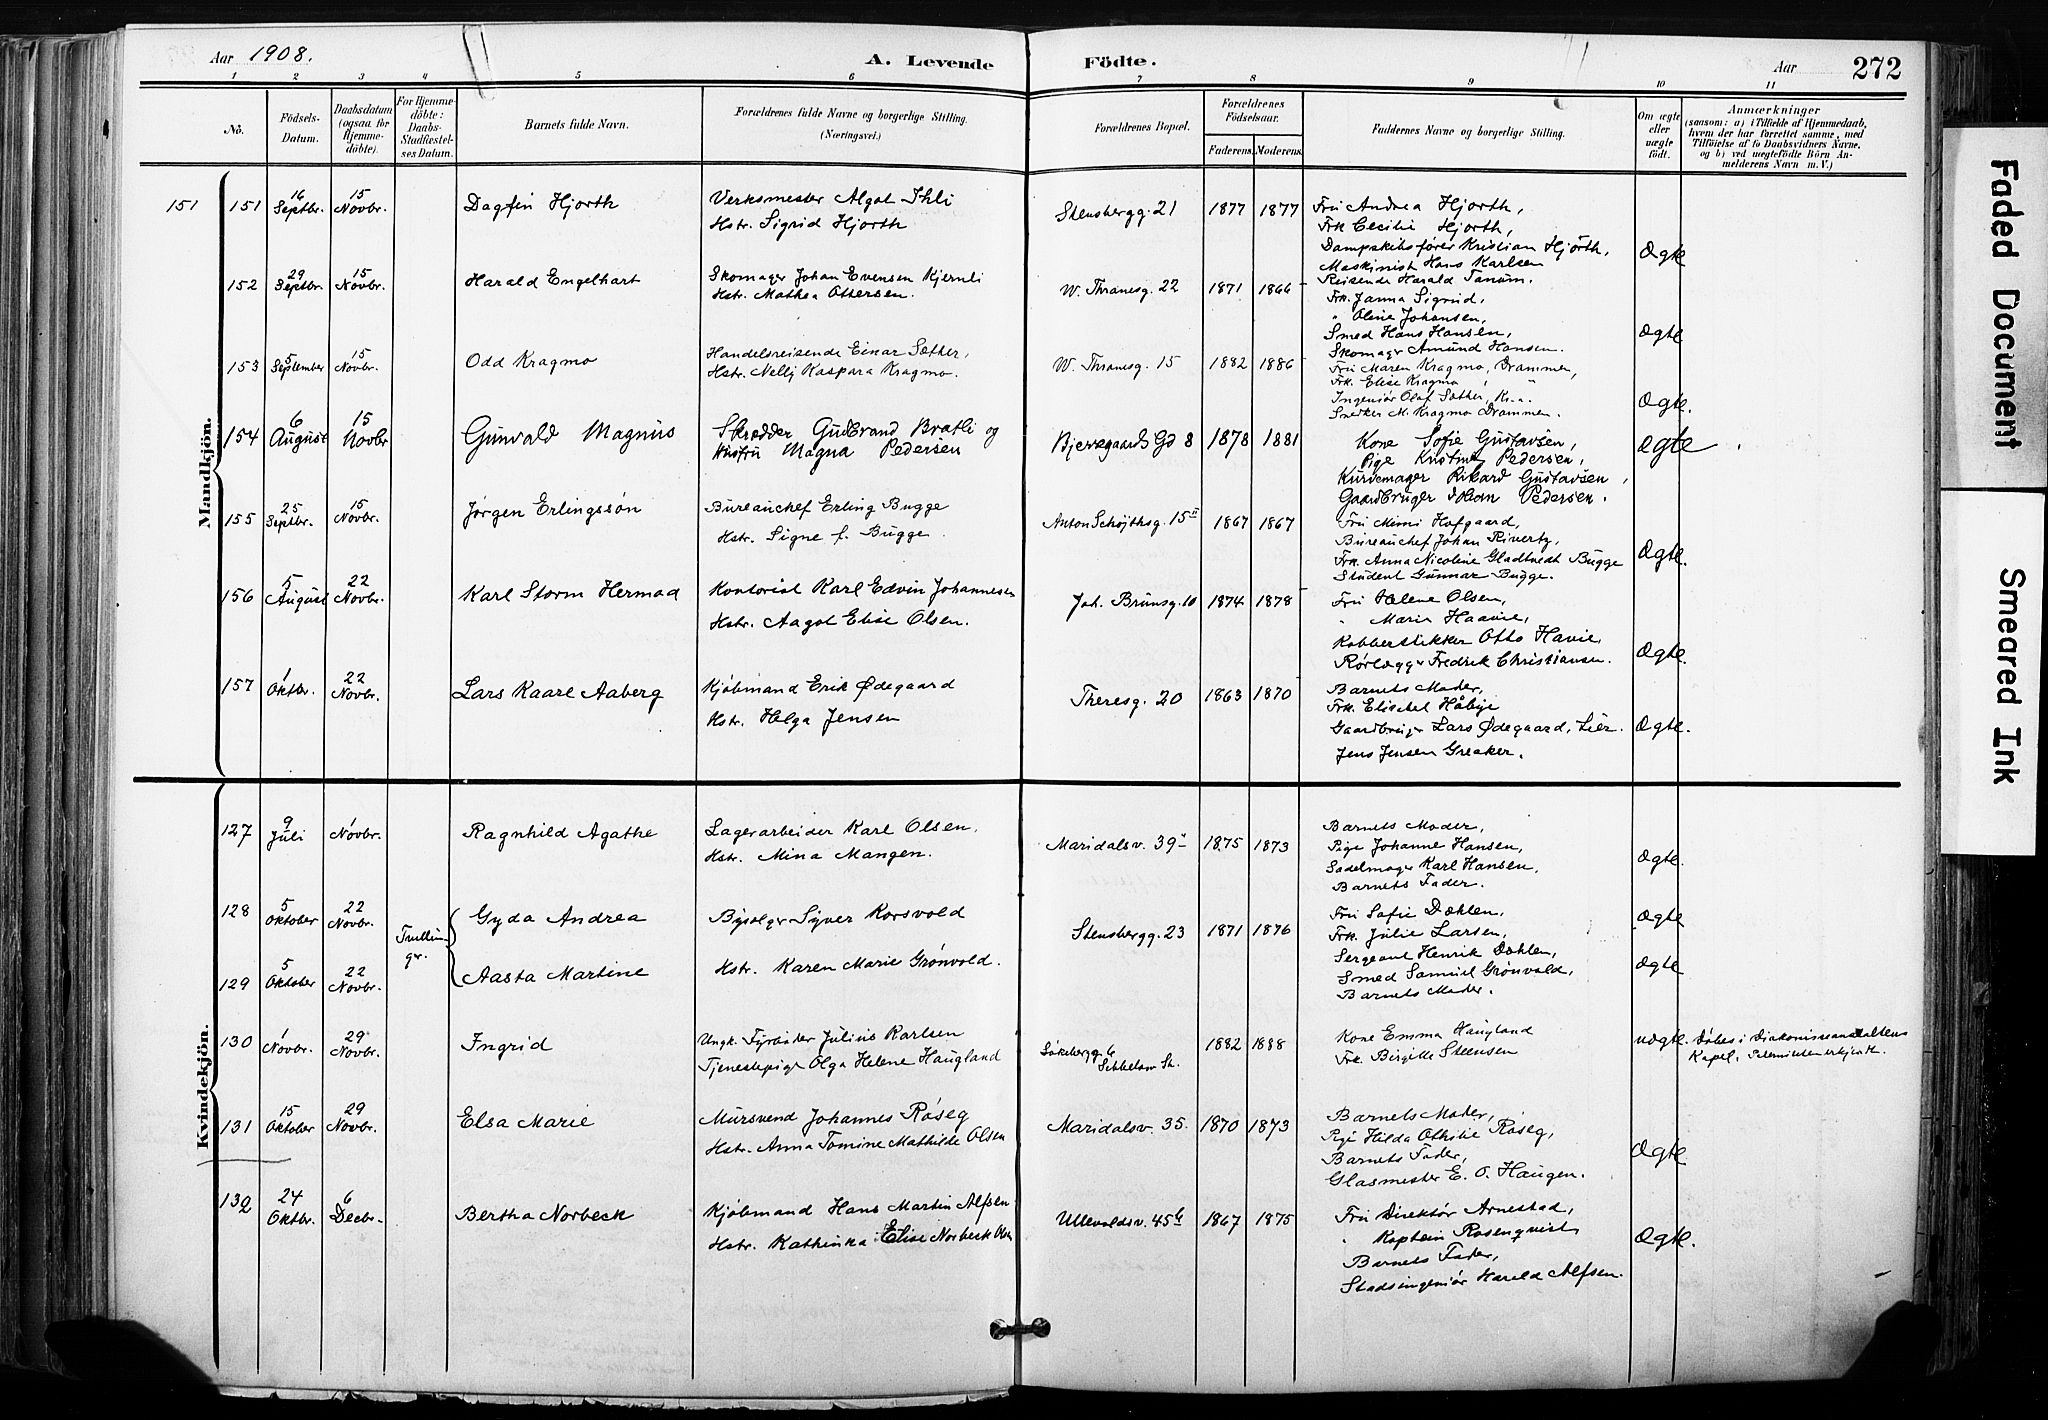 Aar 1908.
A. Levende Födte.
Aar
272
1 2 3 4 5 6 7 8 9 10 11
No.
Födsels-Datum.
Daabsdatum (ogsaa for Hjemme-döbte).
For Hjemme-döbte: Daabs-Stadfæstel-ses Datum.
Barnets fulde Navn.
Forældrenes fulde Navne og borgerlige Stilling. (Næringsvei.)
Forældrenes Bopæl.
Forældrenes Födselsaar.
Faderens. Moderens.
Faddernes Navne og borgerlige Stilling.
Om ægte eller uægte födt.
Anmærkninger
(saasom: a) i Tilfælde af Hjemmedaab, hvem der har forrettet samme, med Tilföielse af to Daabsvidners Navne, og b) ved uægtefödte Börn An-melderens Navn m. V.)
Mandkjön.
151 151 16 Septbr. 15 Novbr. Dagfin Hjorth
Verksmester Algot Ihli
Hstr. Sigrid Hjorth
Stensbergg. 21 1877 1877
Fru Andrea Hjorth,
Frk Cecilie Hjorth,
Dampskibsfører Kristian Hjorth,
Maskinist Hans Karlsen
Ægte
152 29 Septbr. 15 Novbr. Harald Engelhart
Skomager Johan Evensen Kjernli
Hstr. Mathea Ottersen.
W. Thranesg. 22 1871 1866
Reisende Harald Tanum.
Frk. Janna Sigrud,
" Oline Johansen,
Smed Hans Hansen,
Skomagr Amund Hansen.
Ægte
153 5 September 15 Novbr. Odd Kragmo
Handelsreisende Einar Sæther,
Hstr. Nelly Kaspara Kragmo.
W. Thranesg. 15 1882 1886
Fru Maren Kragmo, Drammen,
Frk. Elise Kragmo, "
Ingeniør Olaf Sæther, Kr.a.
Snedker M. Kragmo Drammen.
Ægte.
154 6 August 15 Novbr Gunvald Magnus
Skrædder Gudbrand Bratli og
Hustru Magna Pedersen
Bjerregaards Gd 8 1878 1881
Kone Sofie Gustavsen,
Pige Kristine Pedersen,
Kurvemager Rikard Gustavsen,
Gaardbruger Johan Pedersen.
Ægte
155 25 Septbr. 15 Novbr. Jørgen Erlingssøn
Bureauchef Erling Bugge
Hstr. Signe f. Bugge.
Anton Schøjthsg. 15 II 1867 1867
Fru Mimi Hofgaard,
Bureauchef Johan Rivertz,
Frk. Anna Nicoline Gladtvedt Bugge
Student Gunnar Bugge.
Ægte.
156 5 August 22 Novbr. Karl Storm Hermod
Kontorist Karl Edvin Johannesen
Hstr. Aagot Elise Olsen.
Joh. Brunsg. 10 1874 1878
Fru Helene Olsen,
" Marie Haavie,
Kobberstikker Otto Havie,
Rørlæggr Fredrik Christiansen.
Ægte.
157 1 Oktbr. 22 Novbr. Lars Kaare Aaberg
Kjøbmand Erik Ødegaard
Hstr. Helga Jensen
Theresg. 20 1863 1870
Barnets Moder,
Frk. Elisabet
Gaardbruger Lars Ødegaard, Lier.
Jens Jensen Greaker.
Ægte.
Kvindekjön.
127 9 Juli 1 Novbr. Ragnhild Agathe
Lagerarbeider Karl Olsen.
Hstr. Mina Mangen.
Maridalsv. 39 1875 1873
Barnets Moder,
Pige Johanne Hansen,
Sadelmager Karl Hansen,
Barnets Fader.
Ægte.
128 5 Oktober 22 Novbr. Tvillinger. Gyda Andrea
Byselgr Syver Korsvold
Stensbergg. 23 1871 1876
Fru Sofie Dæhlen,
Frk. Julie Larsen,
Sergeant Henrik Dæhlen,
Ægte
129 5 Oktober 22 Novbr. Aasta Martine
Hstr. Karen Marie Grønvold.
Smed Samuel Grønvold,
Barnets Moder.
Ægte
130 1 Novbr. 29 Novbr. Ingrid
Ungk. Fyrbøder Julius Karlsen
Tjenestepige Olga Helene Haugland
1882 1888
Kone Emma Haugland
Frk. Birgitte Steensen
uægte. Døbes i Diakonisseanstaltens
Kapel.
131 15 Oktober 29 Novbr. Elsa Marie
Mursvend Johannes Røseg
Hstr. Anna Tomine Mathilde Olsen
Maridalsv. 35. 1870 1873
Barnets Moder,
Pige Hilda Othilie Røseg,
Barnets Fader,
Glasmester E. O. Haugen.
Ægte
132 24 Oktbr. 6 Decbr. Bertha Norbeck
Kjøbmand Hans Martin Alfsen
Hstr. Kathinka Elise Norbeck Olsen
Ullevoldsv. 45b 1867 1875
Fru Direktør Arnestad,
" Kaptein Rosenqvist
Barnets Fader,
Stadsingeniør Harald Alfsen.
Ægte.
Faded Document
Smeared Ink